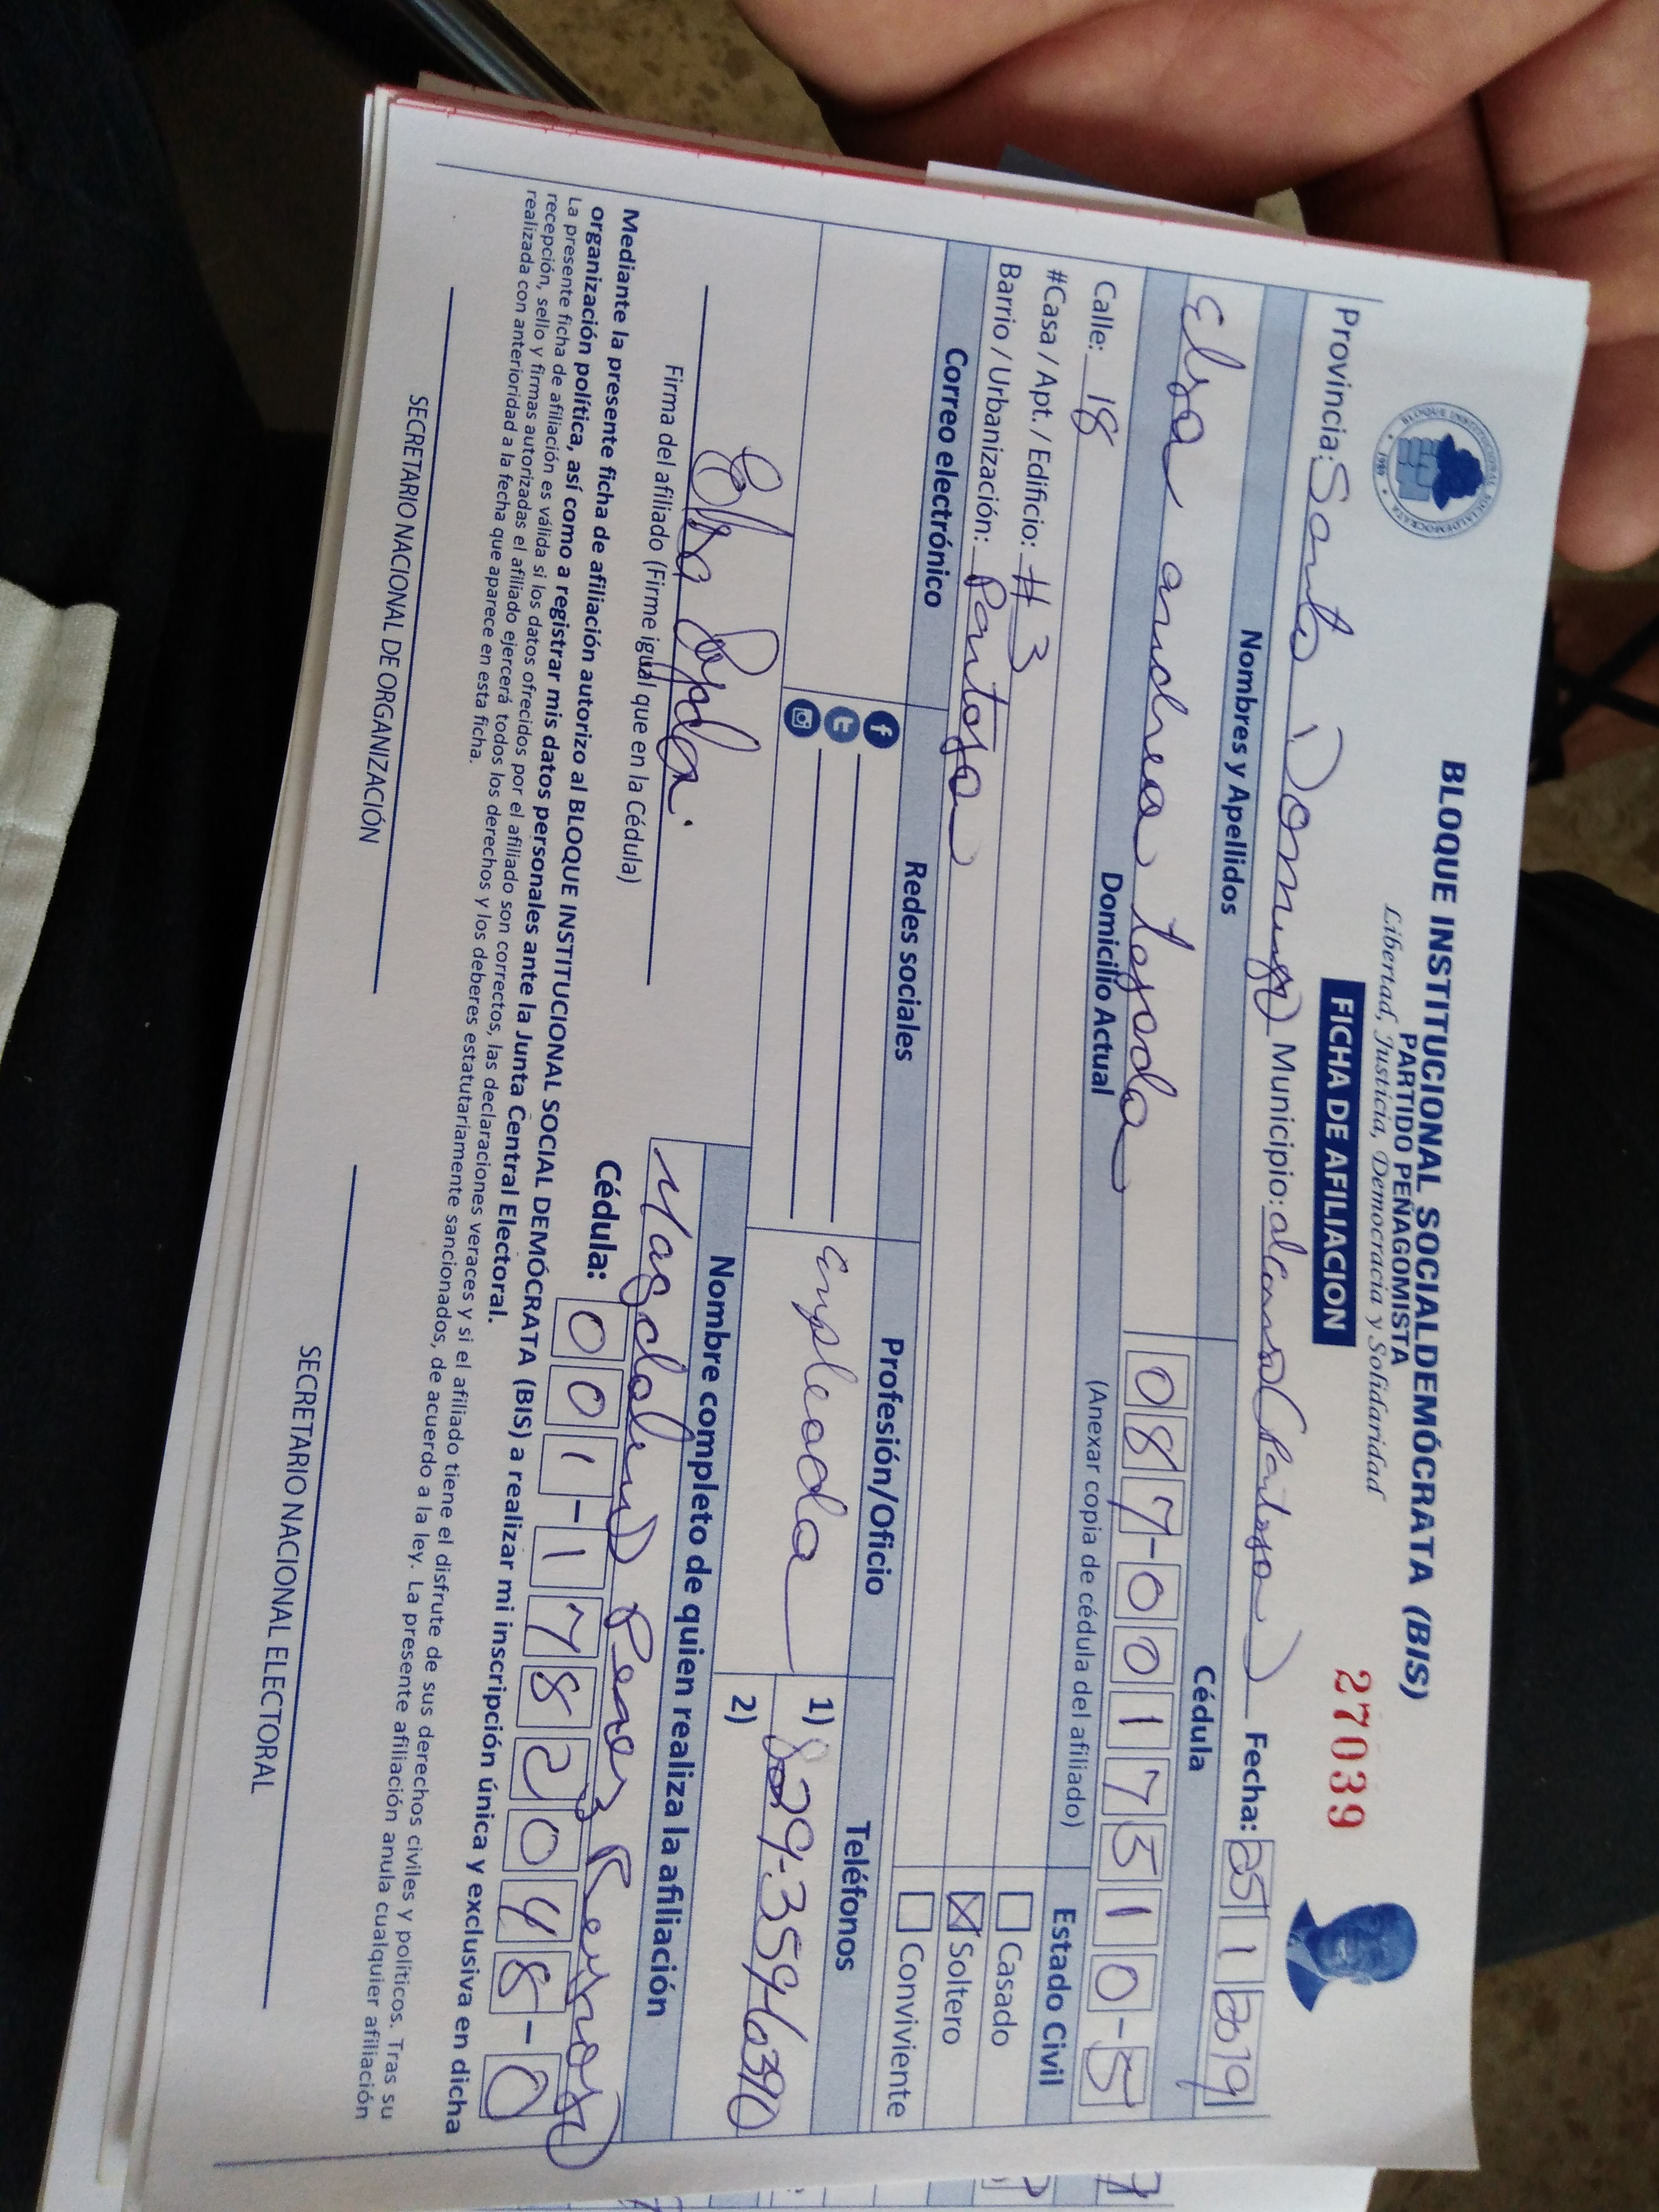 BLOQUE INSTITUCIONAL SOCIALDEMÓCRATA (BIS)
PARTIDO PEÑAGOMISTA
Libertad, Justicia, Democracia y Solidaridad
27039
FICHA DE AFILIACION
BLOQUE INSTITUCIONAL SOCIALDEMOCRATA
1989
Provincia: Santo Domingo Municipio: Fecha: 25 1 2019
Nombres y Apellidos Cédula
Elsa andrea 087-0017310-5
Domicilio Actual (Anexar copia de cédula del afiliado) Estado Civil
Calle: 18
Casado
#Casa / Apt. / Edificio: #3
Soltero
Barrio / Urbanización: Pantoja
Conviviente
Correo electrónico Redes sociales Profesión/Oficio Teléfonos
Empleada
1) 829-359-6390
2)
Nombre completo de quien realiza la afiliación
Elsa
Firma del afiliado (Firme igual que en la Cédula)
Cédula: 001-1782048-0
Mediante la presente ficha de afiliación autorizo al BLOQUE INSTITUCIONAL SOCIAL DEMÓCRATA (BIS) a realizar mi inscripción única y exclusiva en dicha
organización política, así como a registrar mis datos personales ante la Junta Central Electoral.
La presente ficha de afiliación es válida si los datos ofrecidos por el afiliado son correctos, las declaraciones veraces y si el afiliado tiene el disfrute de sus derechos civiles y políticos. Tras su
recepción, sello y firmas autorizadas el afiliado ejercerá todos los derechos y los deberes estatutariamente sancionados, de acuerdo a la ley. La presente afiliación anula cualquier afiliación
realizada con anterioridad a la fecha que aparece en esta ficha.
SECRETARIO NACIONAL DE ORGANIZACIÓN
SECRETARIO NACIONAL ELECTORAL